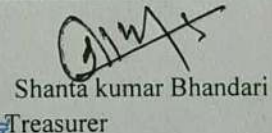 Shanta kumar Bhandari
Treasurer